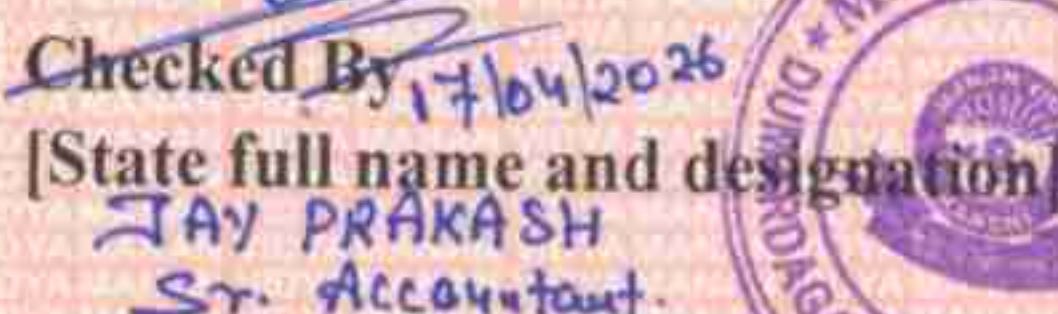 Checked By 17/04/2026
[State full name and designation]
JAY PRAKASH
Sr. Accountant.